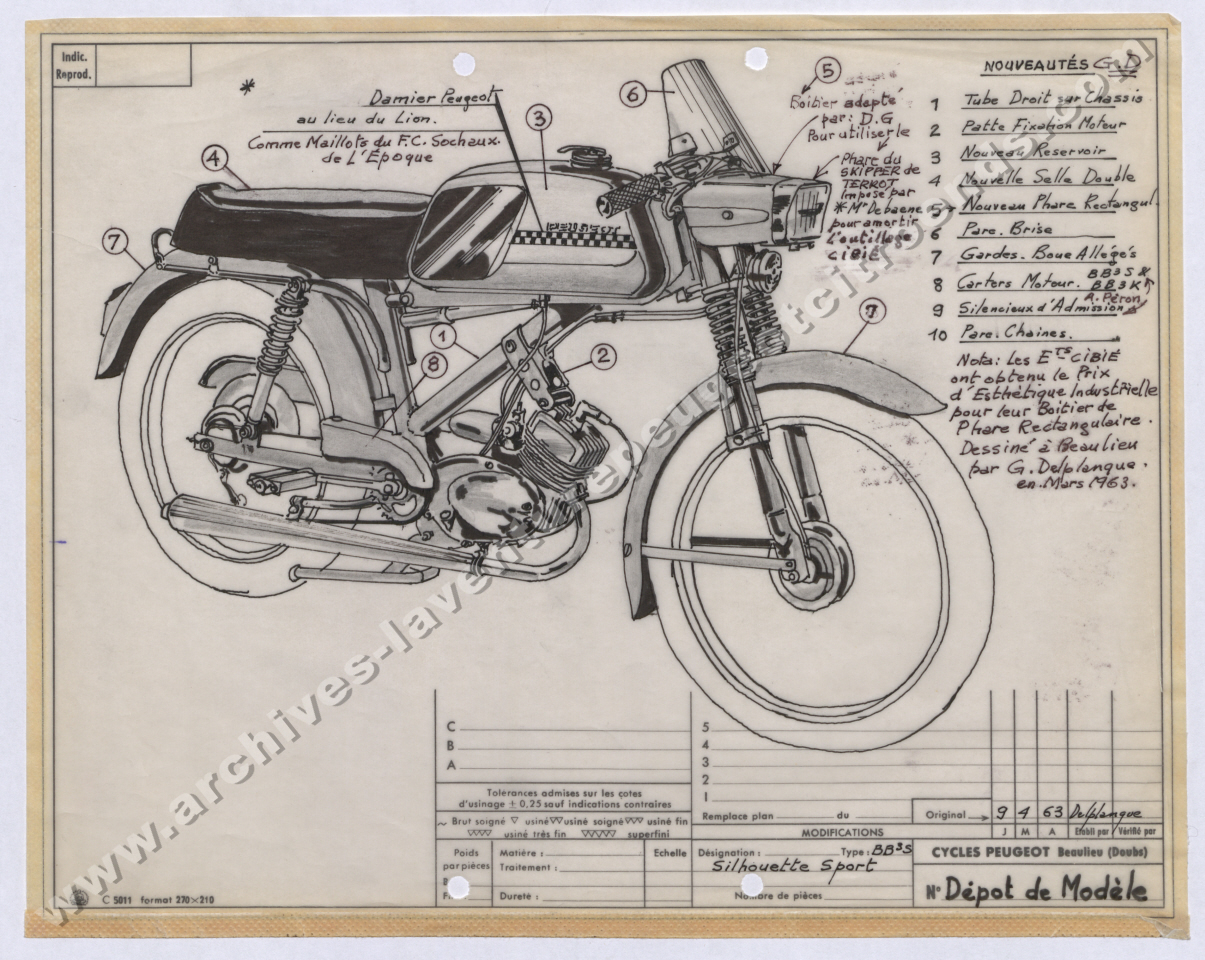 Indic.
Reprod.
*
Damier Peugeot
au lieu du Lion.
Comme Maillots du F.C. Sochaux.
de L'Époque
4
3
6
5
7
1
8
2
7
Boitier adapté
par: D.G
Pour utiliser le
Phare du
SKIPPER de
TERROT
imposé par
* Mr Debaene
pour amortir
L'outillage
CIBIÉ
PEUGEOT
NOUVEAUTÉS G.D
1 Tube Droit sur Chassis
2 Patte Fixation Moteur
3 Nouveau Reservoir
4 Nouvelle Selle Double
5 Nouveau Phare Rectangul.
6 Pare. Brise
7 Gardes. Boue Allégés
8 Carters Moteur. BB3S
BB3K
R. Péron
9 Silencieux d'Admission
10 Pare. Chaines.
Nota: Les Ets CIBIÉ
ont obtenu le Prix
d'Esthétique Industrielle
pour leur Boitier de
Phare Rectangulaire.
Dessiné à Beaulieu
par G. Delplanque.
en Mars 1963.
C
B
A
Tolerances admises sur les cotes
d'usinage ± 0,25 sauf indications contraires
~ Brut soigné ▽ usiné ▽▽ usiné soigné ▽▽▽ usiné fin
▽▽▽ usiné très fin ▽▽▽▽ superfini
Poids
par pièces
Matière :
Traitement :
Dureté :
Echelle
5
4
3
2
1
Remplace plan du
MODIFICATIONS
Original 9 4 63 Delplanque
J M A Etabli par Vérifié par
Désignation : Type : BB3S
Silhouette Sport
Nombre de pièces
CYCLES PEUGEOT Beaulieu (Doubs)
N° Dépot de Modèle
C 5011 format 270×210